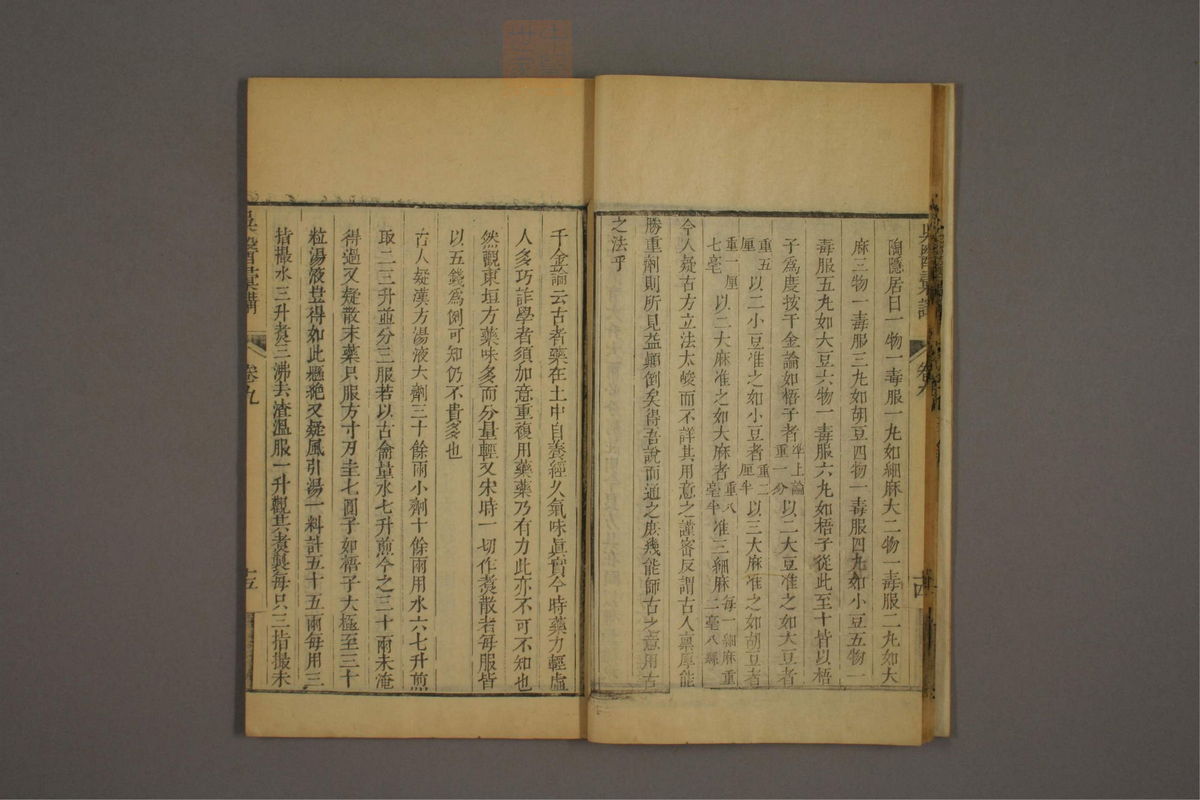 陶隱居曰一物一毒服一丸如細麻大二物一毒服二丸如大
麻三物一毒服三丸如胡豆四物一毒服四丸如小豆五物一
毒服五丸如大豆六物一毒服六丸如梧子從此至十皆以梧
子爲度按千金論如梧子者準上論重一分以二大豆准之如大豆者
重五厘以二小豆准之如小豆者重二厘半以三大麻准之如胡豆者
重一厘七毫以二大麻准之如大麻者重八毫半准三細麻每一細麻重二毫八絲
今人疑古方立法太峻而不詳其用意之謹密反謂古人稟厚能
勝重劑則所見益顛倒矣得吾說而通之庶幾能師古之意用古
之法乎
千金論云古者藥在土中自養經久氣味眞實今時藥力輕虛
人多巧詐學者須加意重複用藥藥乃有力此亦不可不知也
然觀東垣方藥味多而分量輕又宋時一切作煑散者每服皆
以五錢爲例可知仍不貴多也
古人疑漢方湯液大劑三十餘兩小劑十餘兩用水六七升煎
取二三升並分三服若以古龠量水七升煎今之三十兩未淹
得過又疑散末藥只服方寸刀圭七圓子如梧子大極至三十
粒湯液豈得如此懸絶又疑風引湯一料計五十五兩每用三
指撮水三升煑三沸去渣溫服一升觀其煑製每只三指撮未
吳醫彙講
卷九
十五
吳醫彙講
卷九